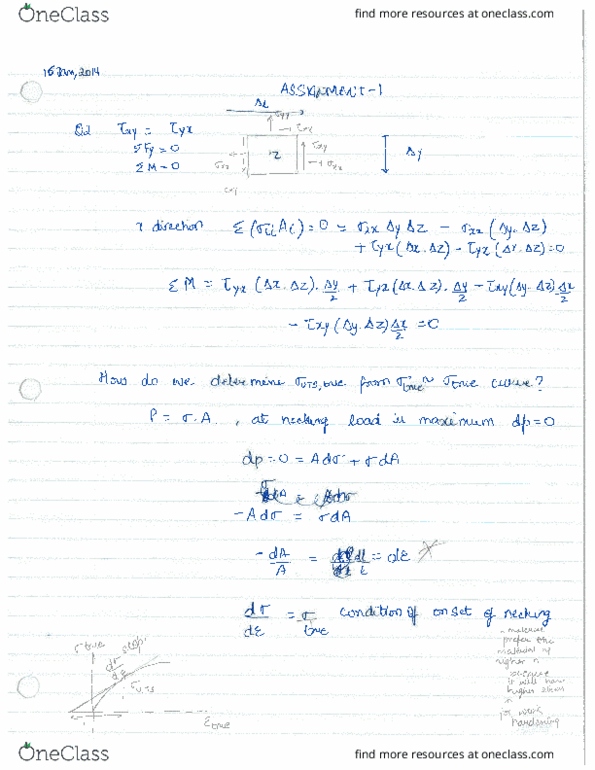 OneClass
find more resources at oneclass.com
16 Jan, 2014
ASSIGNMENT-1
Δx
τyx
Q2 τxy = τyx
ΣFy = 0
ΣM = 0
τxy
σxx
Z
Δy
x direction Σ(σii Ai) = 0 = σxx Δy Δz - σxx (Δy. Δz)
+ τyx (Δx. Δz) - τyx (Δx. Δz) = 0
ΣM = τyx (Δx. Δz). Δy/2 + τyx (Δx. Δz). Δy/2 - τxy (Δy. Δz) Δx/2
- τxy (Δy. Δz) Δx/2 = 0
How do we determine σUTS, true from σtrue ~ σtrue curve?
P = σ.A , at necking load is maximum dp = 0
dp = 0 = Adσ + σdA
-Adσ = σdA
-dA/A = dl/l = dε
dσ/dε = σ true condition of onset of necking
σ true
slope
dσ/dε
σUTS
εtrue
prefer the
material of
higher n
it will have
higher
work
hardening
OneClass
find more resources at oneclass.com